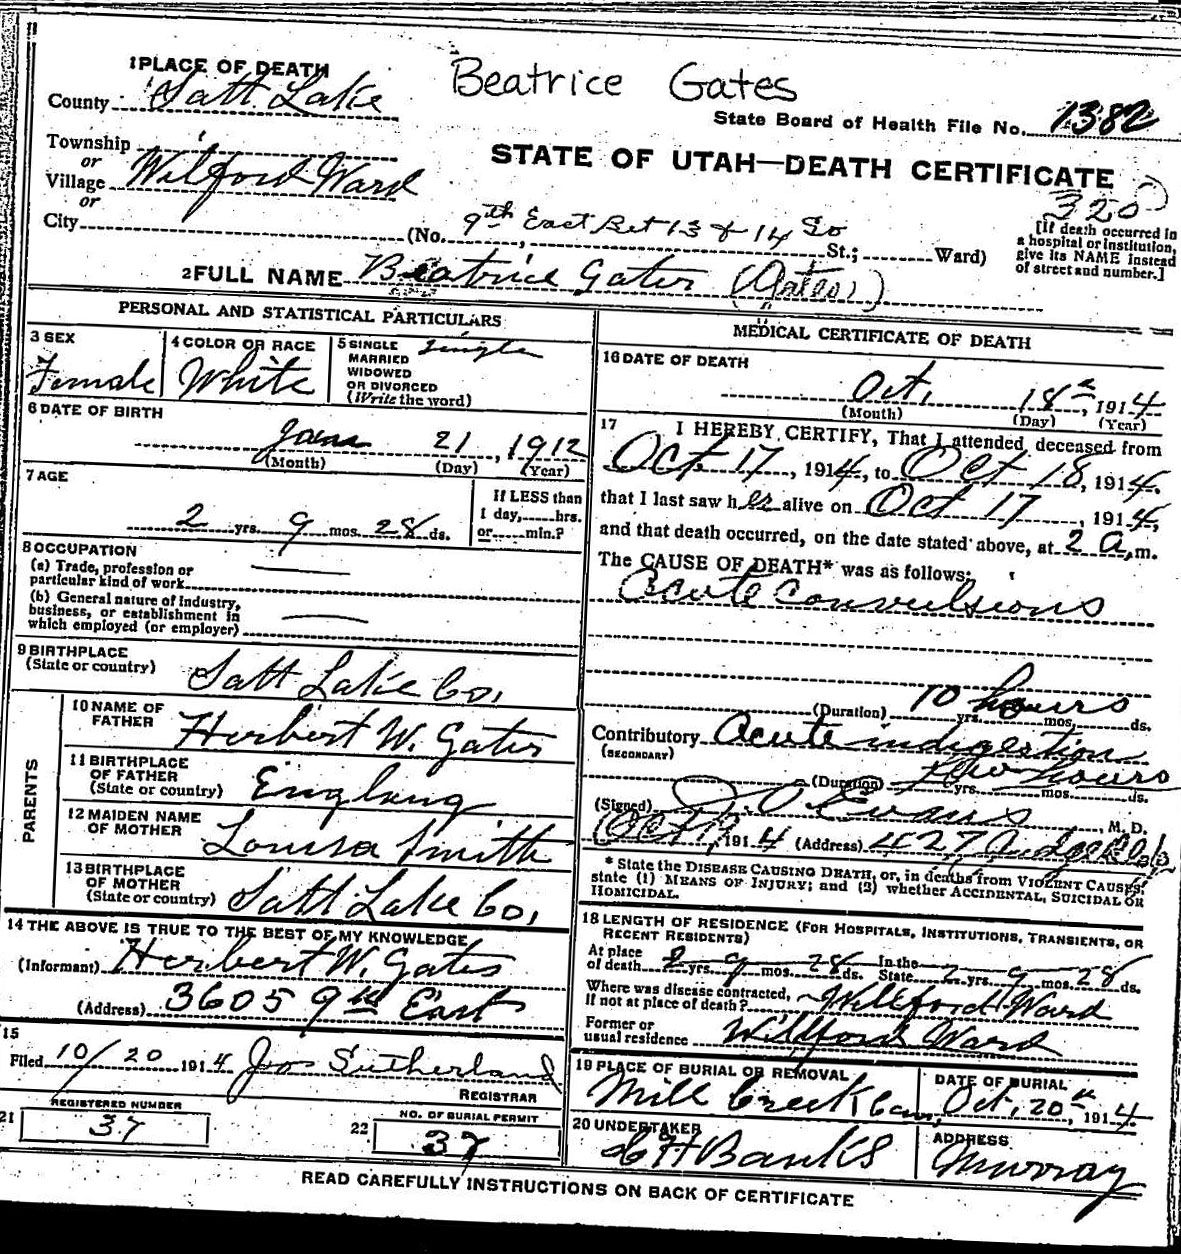 1 PLACE OF DEATH
Beatrice Gates
County Salt Lake
State Board of Health File No. 1382
Township
or
Village Wilford Ward
or
City
STATE OF UTAH—DEATH CERTIFICATE
320
(No. 9th East Bet 13 & 14 So St.; Ward)
[If death occurred in
a hospital or institution,
give its NAME instead
of street and number.]
2 FULL NAME Beatrice Gates (Gates)
PERSONAL AND STATISTICAL PARTICULARS
3 SEX
Female
4 COLOR OR RACE
White
5 SINGLE
MARRIED
WIDOWED
OR DIVORCED
(Write the word)
Single
6 DATE OF BIRTH
Jan 21, 1912
(Month) (Day) (Year)
7 AGE
2 yrs. 9 mos. 28 ds.
If LESS than
1 day, hrs.
or min.?
8 OCCUPATION
(a) Trade, profession or
particular kind of work
(b) General nature of industry,
business, or establishment in
which employed (or employer)
9 BIRTHPLACE
(State or country)
Salt Lake Co.
PARENTS
10 NAME OF
FATHER
Herbert W. Gates
11 BIRTHPLACE
OF FATHER
(State or country)
England
12 MAIDEN NAME
OF MOTHER
Louisa Smith
13 BIRTHPLACE
OF MOTHER
(State or country)
Salt Lake Co.
14 THE ABOVE IS TRUE TO THE BEST OF MY KNOWLEDGE
(Informant) Herbert W. Gates
(Address) 3605 9th East
15
Filed 10/20 1914 Jos Sutherland
REGISTRAR
21
REGISTERED NUMBER
37
22
NO. OF BURIAL PERMIT
37
MEDICAL CERTIFICATE OF DEATH
16 DATE OF DEATH
Oct. 18th, 1914
(Month) (Day) (Year)
17 I HEREBY CERTIFY, That I attended deceased from
Oct. 17, 1914, to Oct 18, 1914.
that I last saw her alive on Oct 17, 1914,
and that death occurred, on the date stated above, at 2 a.m.
The CAUSE OF DEATH* was as follows:
Acute Convulsions
10 hours
(Duration) yrs. mos. ds.
Contributory Acute indigestion
(SECONDARY)
few hours
(Duration) yrs. mos. ds.
(Signed) J. O. Evans, M. D.
1914 (Address) 427 Judge Bldg
* State the DISEASE CAUSING DEATH, or, in deaths from VIOLENT CAUSES,
state (1) MEANS OF INJURY; and (2) whether ACCIDENTAL, SUICIDAL OR
HOMICIDAL.
18 LENGTH OF RESIDENCE (FOR HOSPITALS, INSTITUTIONS, TRANSIENTS, OR
RECENT RESIDENTS)
At place
of death 2 yrs. 9 mos. 28 ds.
In the
State 2 yrs. 9 mos. 28 ds.
Where was disease contracted,
if not at place of death? Willford Ward
Former or
usual residence Willford Ward
19 PLACE OF BURIAL OR REMOVAL
Mill Creek Cem,
DATE OF BURIAL
Oct. 20th, 1914
20 UNDERTAKER
H Banks
ADDRESS
Murray
READ CAREFULLY INSTRUCTIONS ON BACK OF CERTIFICATE